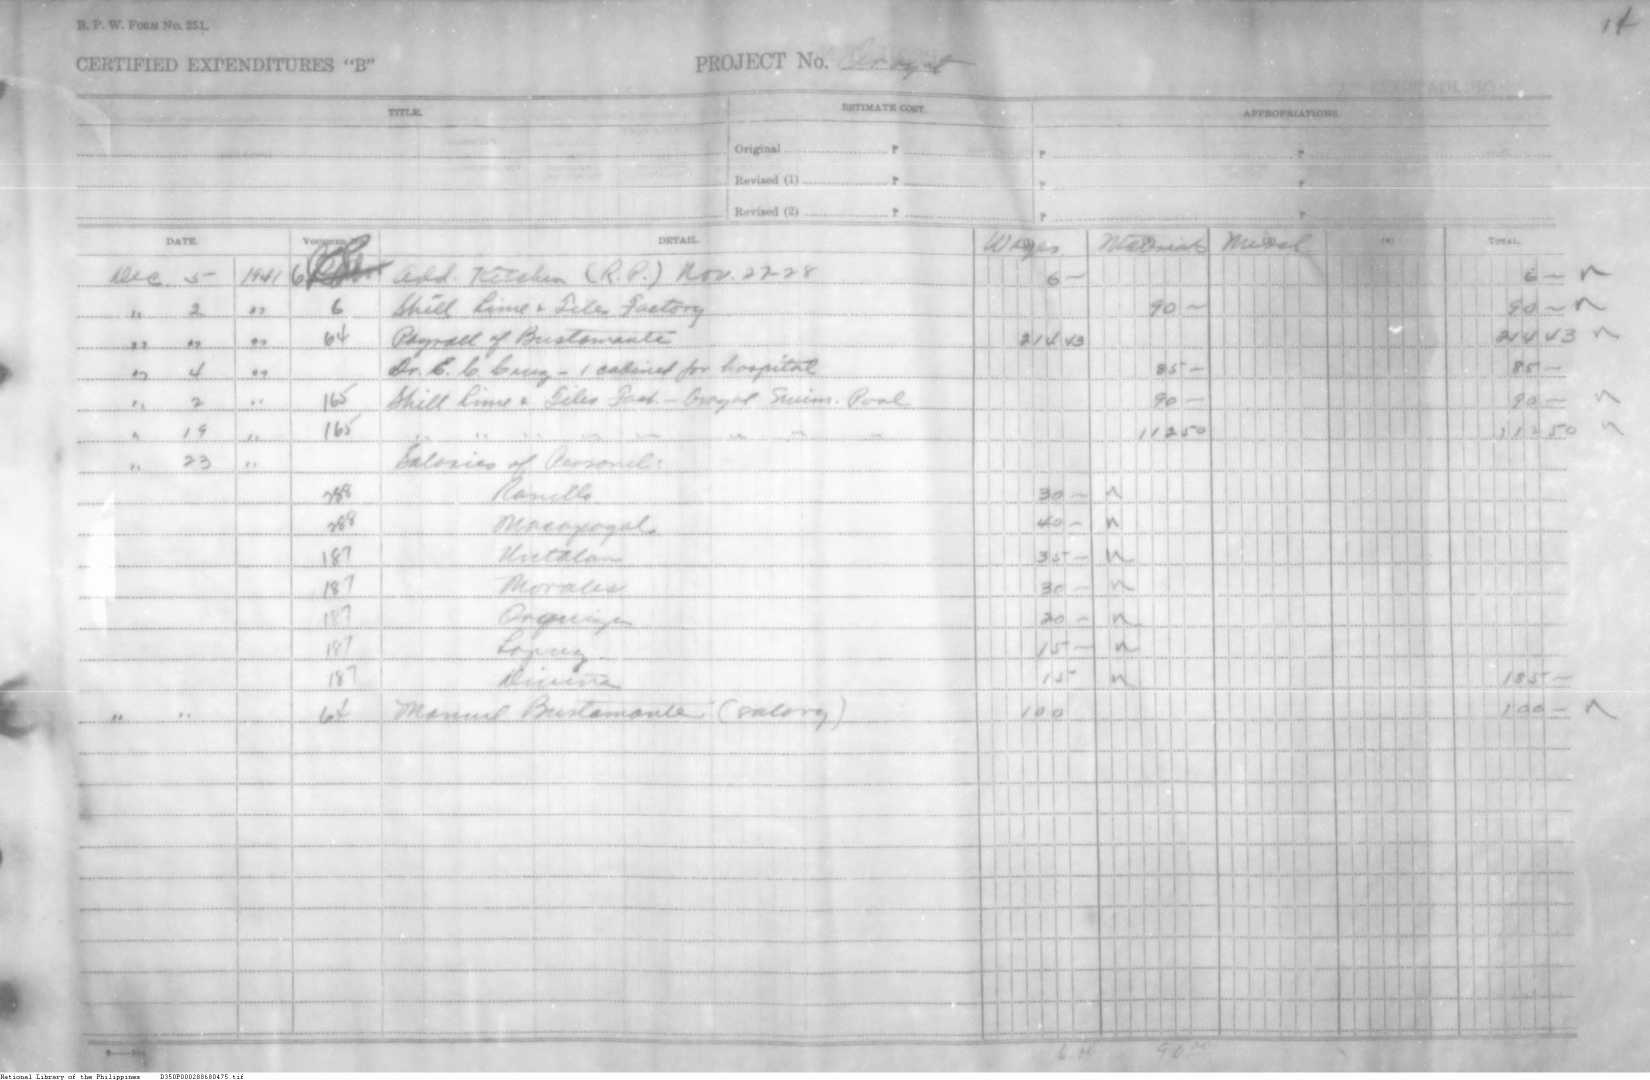 14
B. P. W. FORM No. 251.
CERTIFIED EXPENDITURES "B" PROJECT No. Arayat
TITLE. ESTIMATE COST. APPROPRIATIONS.
Original ₱ ₱ ₱
Revised (1) ₱ ₱ ₱
Revised (2) ₱ ₱ ₱
DATE. VOUCHER DETAIL. Wages Materials Miscel TOTAL.
Dec. 5 1941 6 Add. Kitchen (R.P.) Nov. 22-28 6 — 6 —
" 2 " 6 Skill Lime & Tiles Factory 90 — 90 —
" " " 64 Payroll of Bustamante 214 43 214 43
" 4 " Dr. C. C. Cruz - 1 cabinet for hospital 85 — 85 —
" 2 " 165 Skill Lime & Tiles Fact. - Arayat Swim. Pool 90 — 90 —
" 19 " 165 " " " " " " " " 112 50 112 50
" 23 " Salaries of Personel:
288 Ranillo 30 —
288 Macapagal 40 —
187 35 —
187 Morales 30 —
187 20 —
187 Lopez 15 —
187 15 185 —
" " 64 Manuel Bustamante (salary) 100 100 —
National Library of the Philippines D350P000288680475.tif